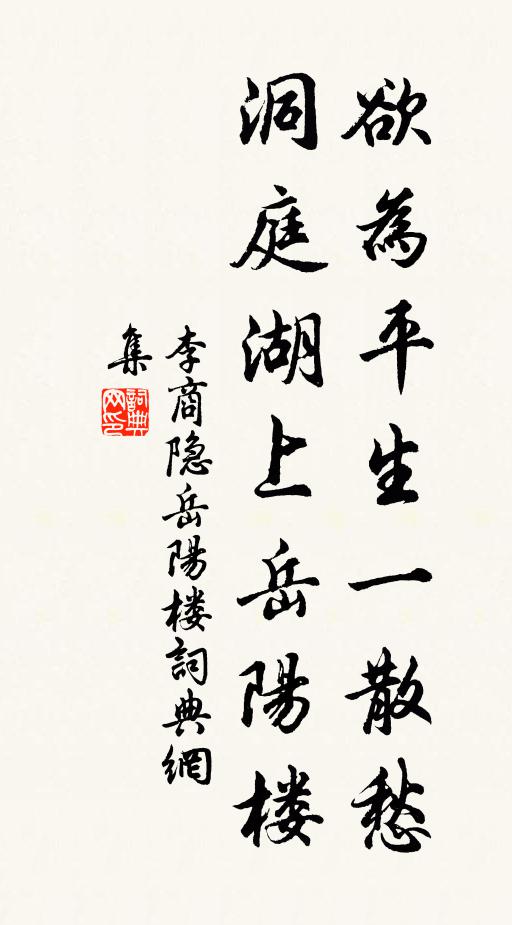 欲為平生一散愁
洞庭湖上岳陽楼
李商隐岳陽楼詞典網
集
詞典
网印